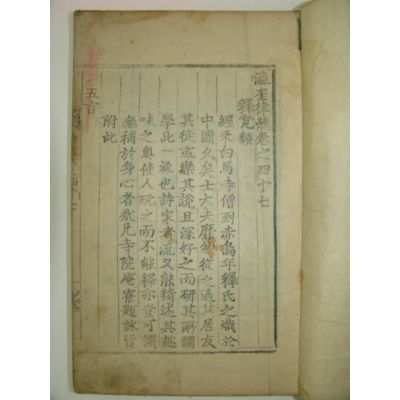 瀛奎律髓卷之四十七
釋梵類
經來白馬寺僧到赤烏年釋氏之熾於
中國久矣士大夫靡然從之適其居友
其徒或樂其說且深好之而研其所謂
學此一流也詩家者流又能精述其趣
味之奧使人玩之而不能釋亦豈可謂
無補於身心者哉凡寺院庵寮題詠皆
附此
五言